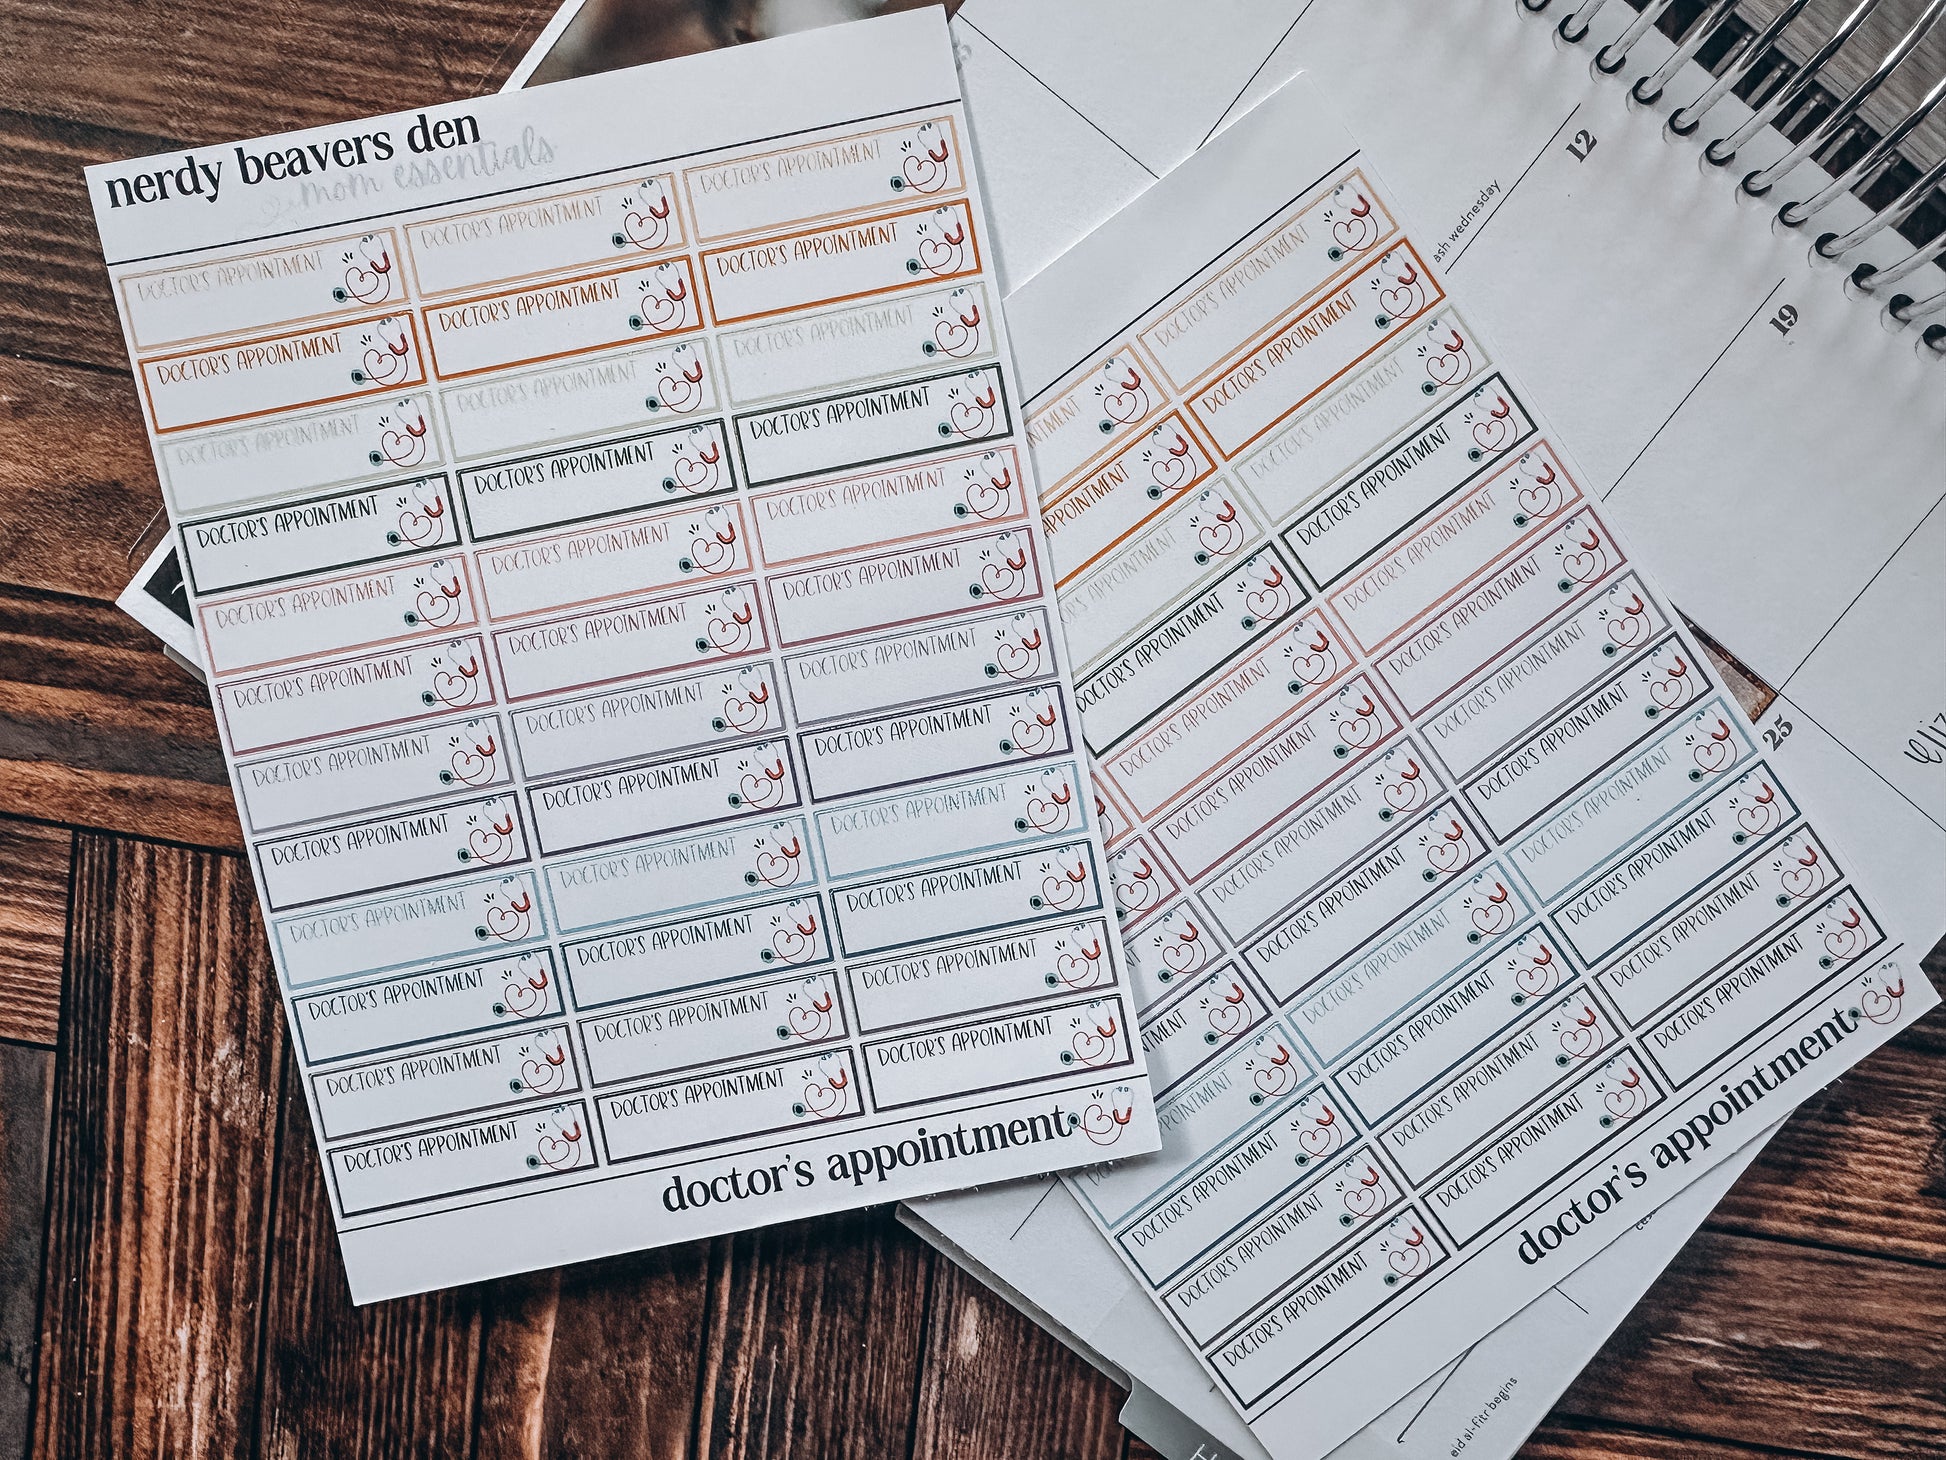 nerdy beavers den
mom essentials
DOCTOR'S APPOINTMENT DOCTOR'S APPOINTMENT DOCTOR'S APPOINTMENT
DOCTOR'S APPOINTMENT DOCTOR'S APPOINTMENT DOCTOR'S APPOINTMENT
DOCTOR'S APPOINTMENT DOCTOR'S APPOINTMENT DOCTOR'S APPOINTMENT
DOCTOR'S APPOINTMENT DOCTOR'S APPOINTMENT DOCTOR'S APPOINTMENT
DOCTOR'S APPOINTMENT DOCTOR'S APPOINTMENT DOCTOR'S APPOINTMENT
DOCTOR'S APPOINTMENT DOCTOR'S APPOINTMENT DOCTOR'S APPOINTMENT
DOCTOR'S APPOINTMENT DOCTOR'S APPOINTMENT DOCTOR'S APPOINTMENT
DOCTOR'S APPOINTMENT DOCTOR'S APPOINTMENT DOCTOR'S APPOINTMENT
DOCTOR'S APPOINTMENT DOCTOR'S APPOINTMENT DOCTOR'S APPOINTMENT
DOCTOR'S APPOINTMENT DOCTOR'S APPOINTMENT DOCTOR'S APPOINTMENT
DOCTOR'S APPOINTMENT DOCTOR'S APPOINTMENT DOCTOR'S APPOINTMENT
DOCTOR'S APPOINTMENT DOCTOR'S APPOINTMENT DOCTOR'S APPOINTMENT
doctor's appointment
DOCTOR'S APPOINTMENT
APPOINTMENT DOCTOR'S APPOINTMENT
APPOINTMENT DOCTOR'S APPOINTMENT
DOCTOR'S APPOINTMENT DOCTOR'S APPOINTMENT
DOCTOR'S APPOINTMENT DOCTOR'S APPOINTMENT
DOCTOR'S APPOINTMENT DOCTOR'S APPOINTMENT
DOCTOR'S APPOINTMENT DOCTOR'S APPOINTMENT
DOCTOR'S APPOINTMENT DOCTOR'S APPOINTMENT
DOCTOR'S APPOINTMENT DOCTOR'S APPOINTMENT
DOCTOR'S APPOINTMENT DOCTOR'S APPOINTMENT DOCTOR'S APPOINTMENT
DOCTOR'S APPOINTMENT DOCTOR'S APPOINTMENT DOCTOR'S APPOINTMENT
DOCTOR'S APPOINTMENT DOCTOR'S APPOINTMENT DOCTOR'S APPOINTMENT
doctor's appointment
12
ash wednesday
19
25
eid al-fitr begins